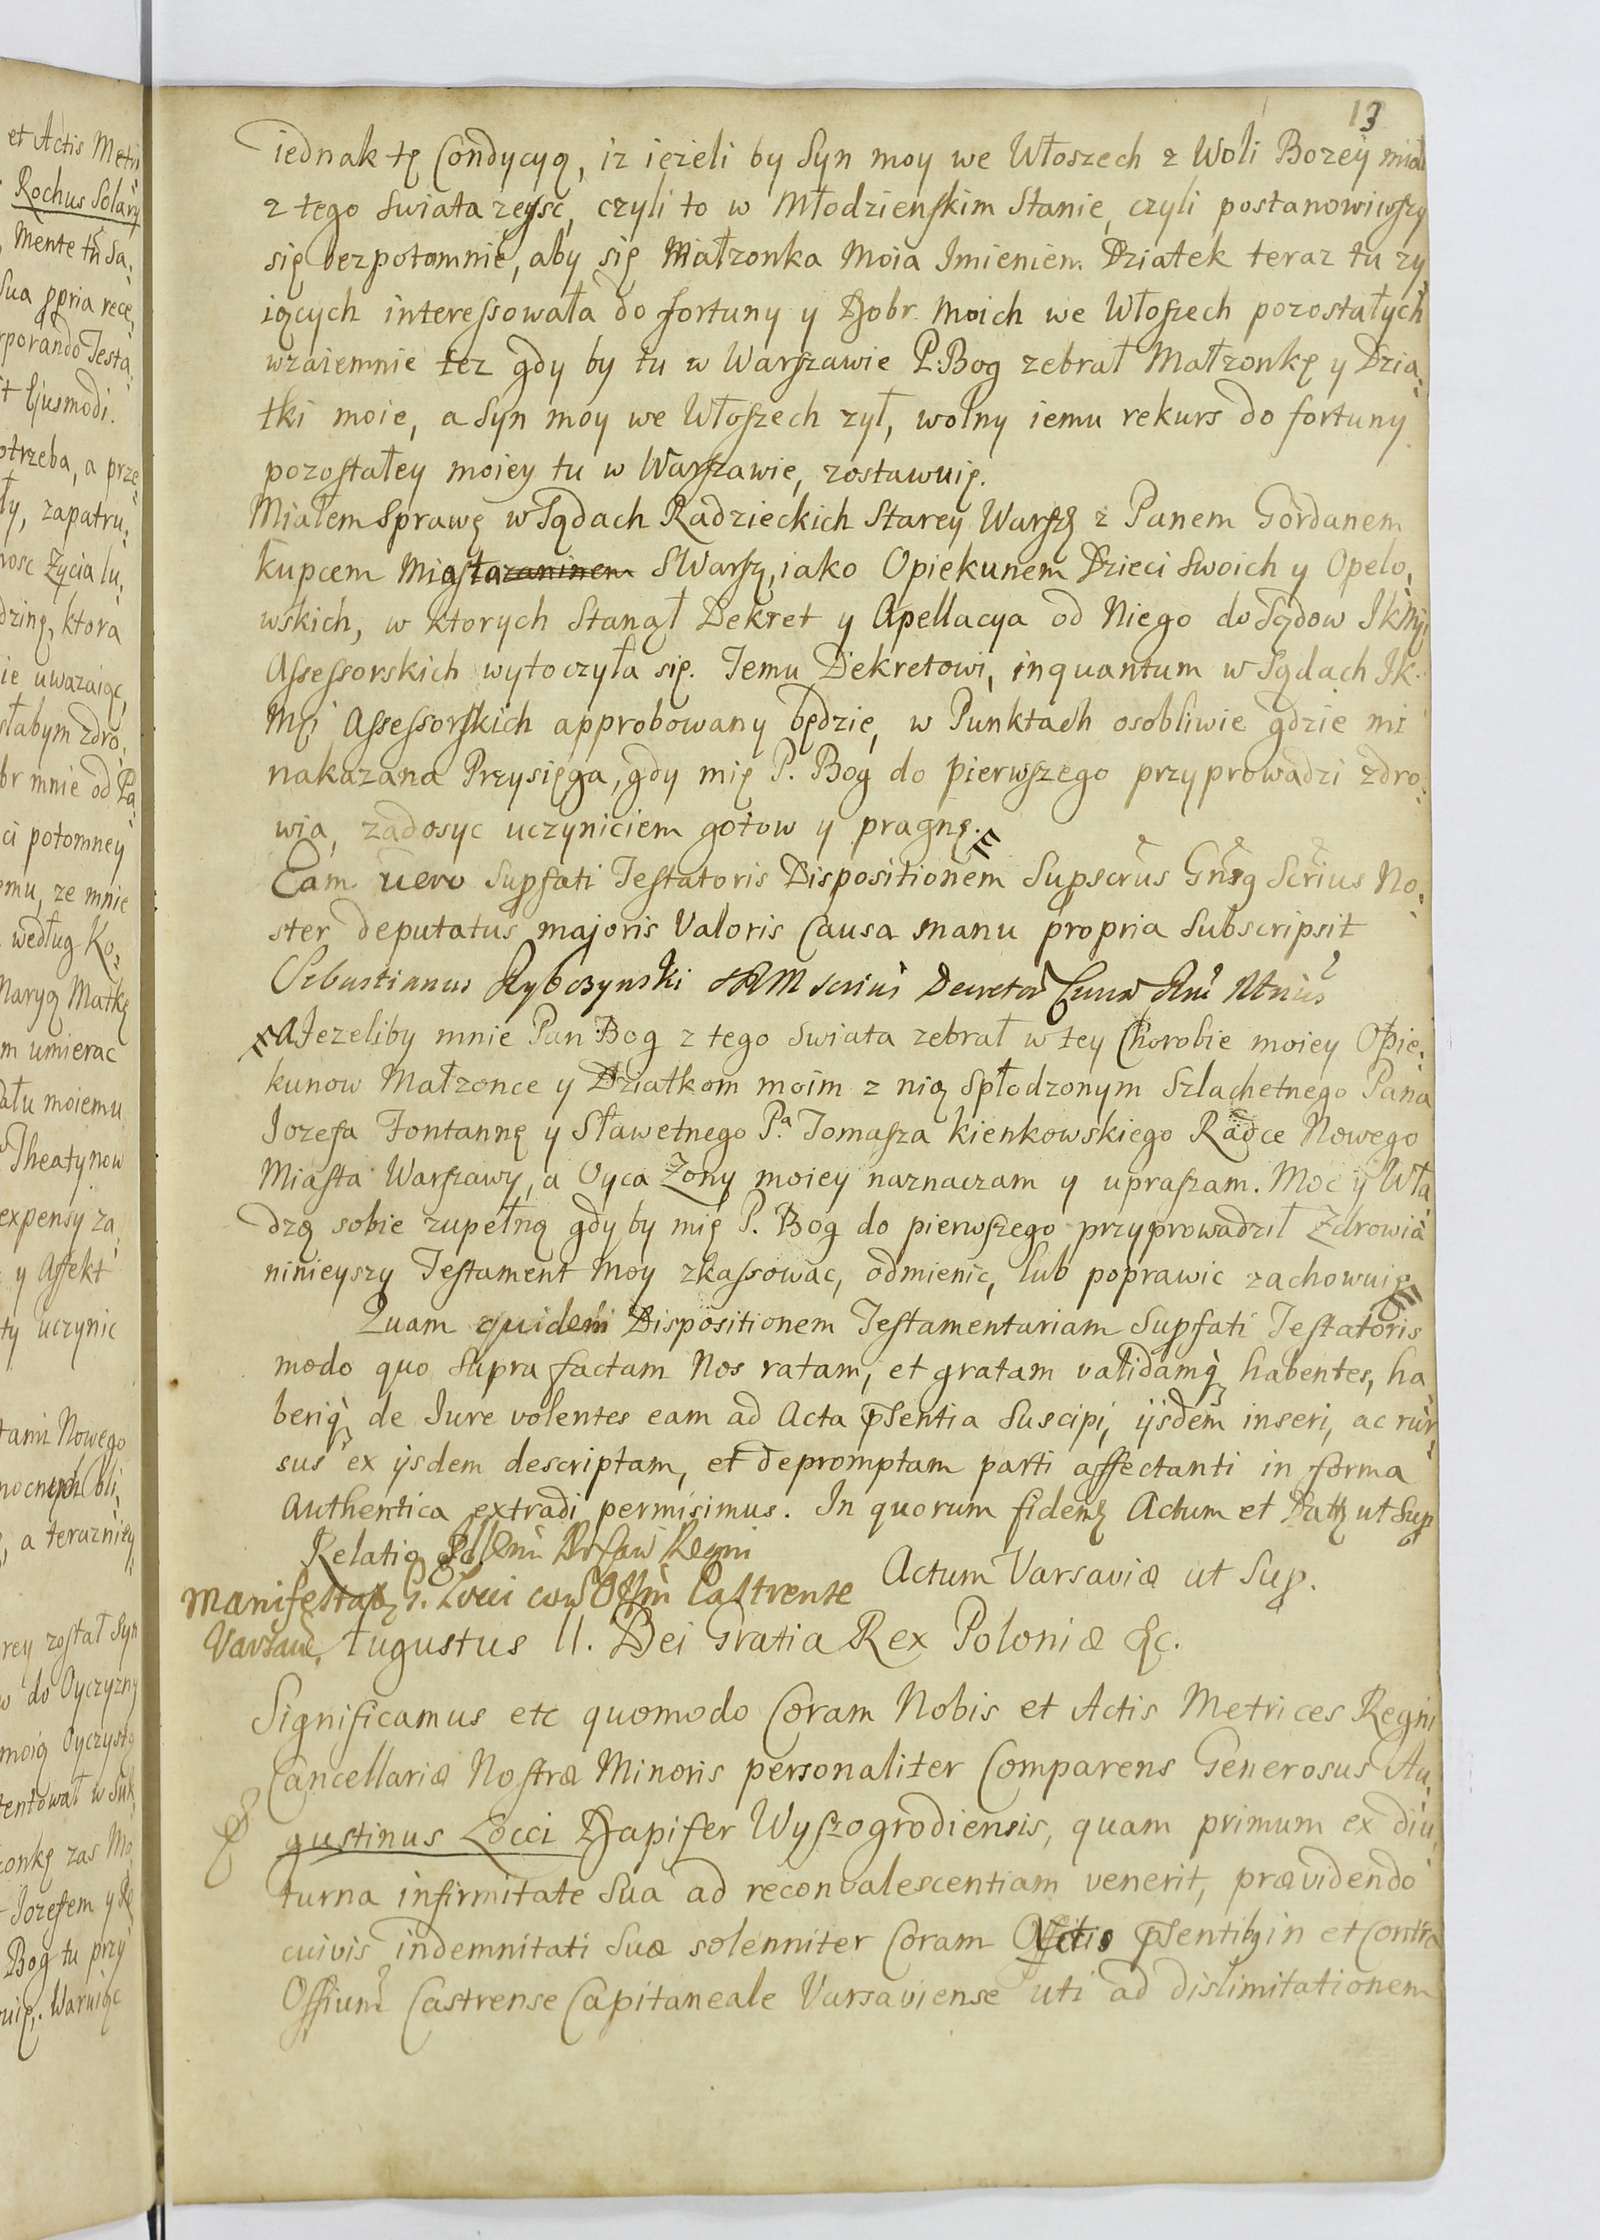 et Actis Metri
Rochus Solary
Mente
Sua ppria rece,
rporando Testa,
t Ejusmodi.
otrzeba, a prze
ły, zapatru,
nosc Zycia lu,
dzinę, ktora
ie uwazaiąc,
słabym zdro,
br mnie od Pa
ci potomney
emu, ze mnie
według Ko,
Maryą Matkę
m umierac
dału moiemu
Theatynow
expensy za,
y Affekt
ty uczynic
tami Nowego
mocnych obli,
, a terazniey,
rey został Syn
w do Oyczyzny
moią Oyczystą
tentował w Suk,
zonkę zas Mo
Jozefem y
Bog tu przy
uię. Waruiąc
13
iednak tę Condycyą, iz iezeli by Syn moy we Włoszech z Woli Bozey miał
z tego swiata zeysc, czyli to w Młodzienskim Stanie, czyli postanowiwszy
się bezpotomnie, aby się Małzonka Moia Imieniem Dziatek teraz tu zy
iących interessowała do fortuny y Dobr moich we Włoszech pozostałych
wzaiemnie tez gdy by tu w Warszawie P. Bog zebrał Małzonkę y Dzia,
tki moie, a Syn moy we Włoszech zył, wolny iemu rekurs do fortuny
pozostałey moiey tu w Warszawie, zostawuię.
Miałem Sprawę w Sądach Radzieckich Starey Warsz z Panem Gordanem
kupcem Miastazaninem SWarsz, iako Opiekunem Dzieci Swoich y Opelo,
wskich, w ktorych Stanął Dekret y Apellacya od Niego do Sądow IkMci
Assessorskich wytoczyła się. Temu Dekretowi, inquantum w Sądach Ik.
Mci Assessorskich approbowany będzie, w Punktach osobliwie gdzie mi
nakazana Przysięga, gdy mię P. Bog do pierwszego przyprowadzi zdro,
wia, zadosyc uczyniciem gotow y pragnę.
Eam vero Supfati Testatoris Dispositionem Supscrus Gnsq Scrius No,
ster deputatus majoris Valoris Causa manu propria Subscripsit
Sebastianus Rybczynski SRM scrius Decretor
A Jezeliby mnie Pan Bog z tego swiata zebrał w tey Chorobie moiey Opie,
kunow Małzonce y Dziatkom moim z nią Spłodzonym Szlachetnego Pana
Iozefa Fontannę y Sławetnego Pa Tomasza kienkowskiego Radce Nowego
Miasta Warszawy, a Oyca Zony moiey naznaczam y upraszam. Moc y Wła
dzą sobie zupełną gdy by mię P. Bog do pierwszego przyprowadził Zdrowia
ninieyszy Testament Moy zkassowac, odmienic, lub poprawic zachowuię
Quam quidem Dispositionem Testamentariam Supfati Testatoris
modo quo Supra factam Nos ratam, et gratam validamq habentes, ha
beriq de Iure volentes eam ad Acta pSentia Suscipi, ijsdem inseri, ac rur
sus ex ijsdem descriptam, et depromptam parti affectanti in forma
authentica extradi permisimus. In quorum fidem Actum et Dat ut Sup
Relatio
Actum Varsaviæ ut Sup.
Manifestat G. Locci con Offm Castrense
Varsav.
Augustus II. Dei Gratia Rex Poloniæ &c.
Significamus etc quomodo Coram Nobis et Actis Metrices Regni
Cancellariæ Nostræ Minoris personaliter Comparens Generosus Au,
gustinus Locci Dapifer Wyszogrodiensis, quam primum ex diu,
turna infirmitate Sua ad reconvalescentiam venerit, prævidendo
cuivis indemnitati Suæ solenniter Coram Actis pSentibq in et contra
Offium Castrense Capitaneale Varsaviense uti ad dislimitationem